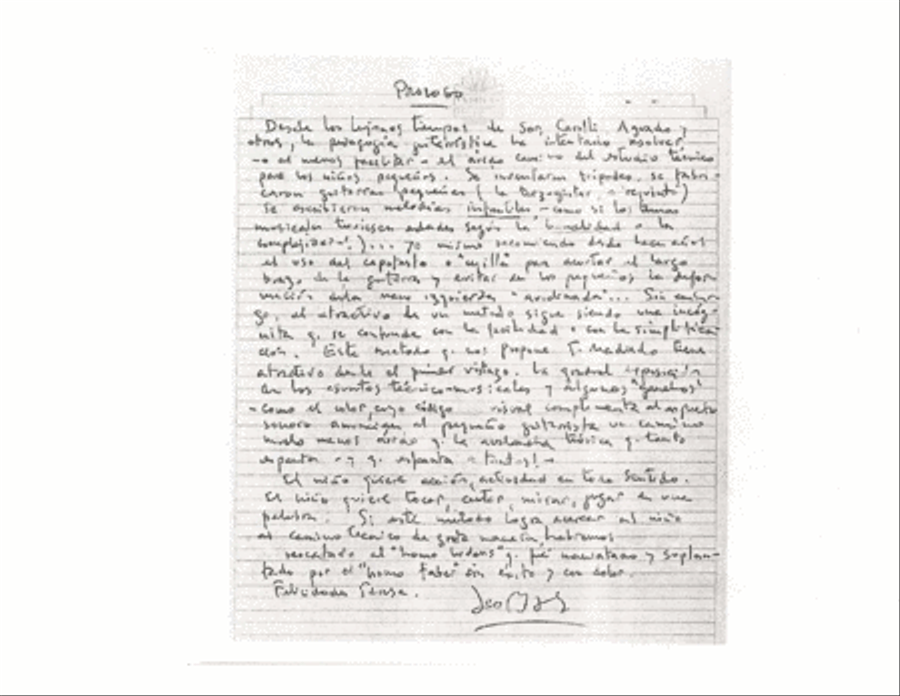 PROLOGO
Desde los lejanos tiempos de Sor, Carulli, Aguado y
otros, la pedagogía guitarística ha intentado resolver
- o al menos facilitar - el árido camino del estudio técnico
para los niños pequeños. Se inventaron trípodes, se fabri-
caron guitarras pequeñas (la "requinto")
Se escribieron melodías infantiles - como si los temas
musicales tuviesen edades según la banalidad o la
complejidad!)... Yo mismo recomiendo desde hace años
el uso del capotasto o "cejilla" para acortar el largo
brazo de la guitarra y evitar en los pequeños la defor-
mación de la mano izquierda "avidriada"... Sin embar-
go, el atractivo de un método sigue siendo una incóg-
nita q. se confunde con la facilidad o con la simplifica-
ción. Este metodo q. nos propone T. Madiedo tiene
atractivo desde el primer vistazo. La gradual exposición
en los asuntos técnico-musicales y algunos "ganchos"
- como el color, cuyo código visual complementa el aspecto
sonoro anuncian al pequeño guitarrista un camino
mucho menos árido q. la avalancha teórica q. tanto
espanta - y q. espanta a tantos! -
El niño quiere acción, actividad en todo sentido.
El niño quiere tocar, cantar, mirar, jugar en una
palabra. Si este método logra acercar al niño
al camino técnico de grata manera, habremos
rescatado al "homo ludens" q. fué maniatado y suplan-
tado por el "homo faber" sin éxito y con dolor.
Felicidades Teresa.